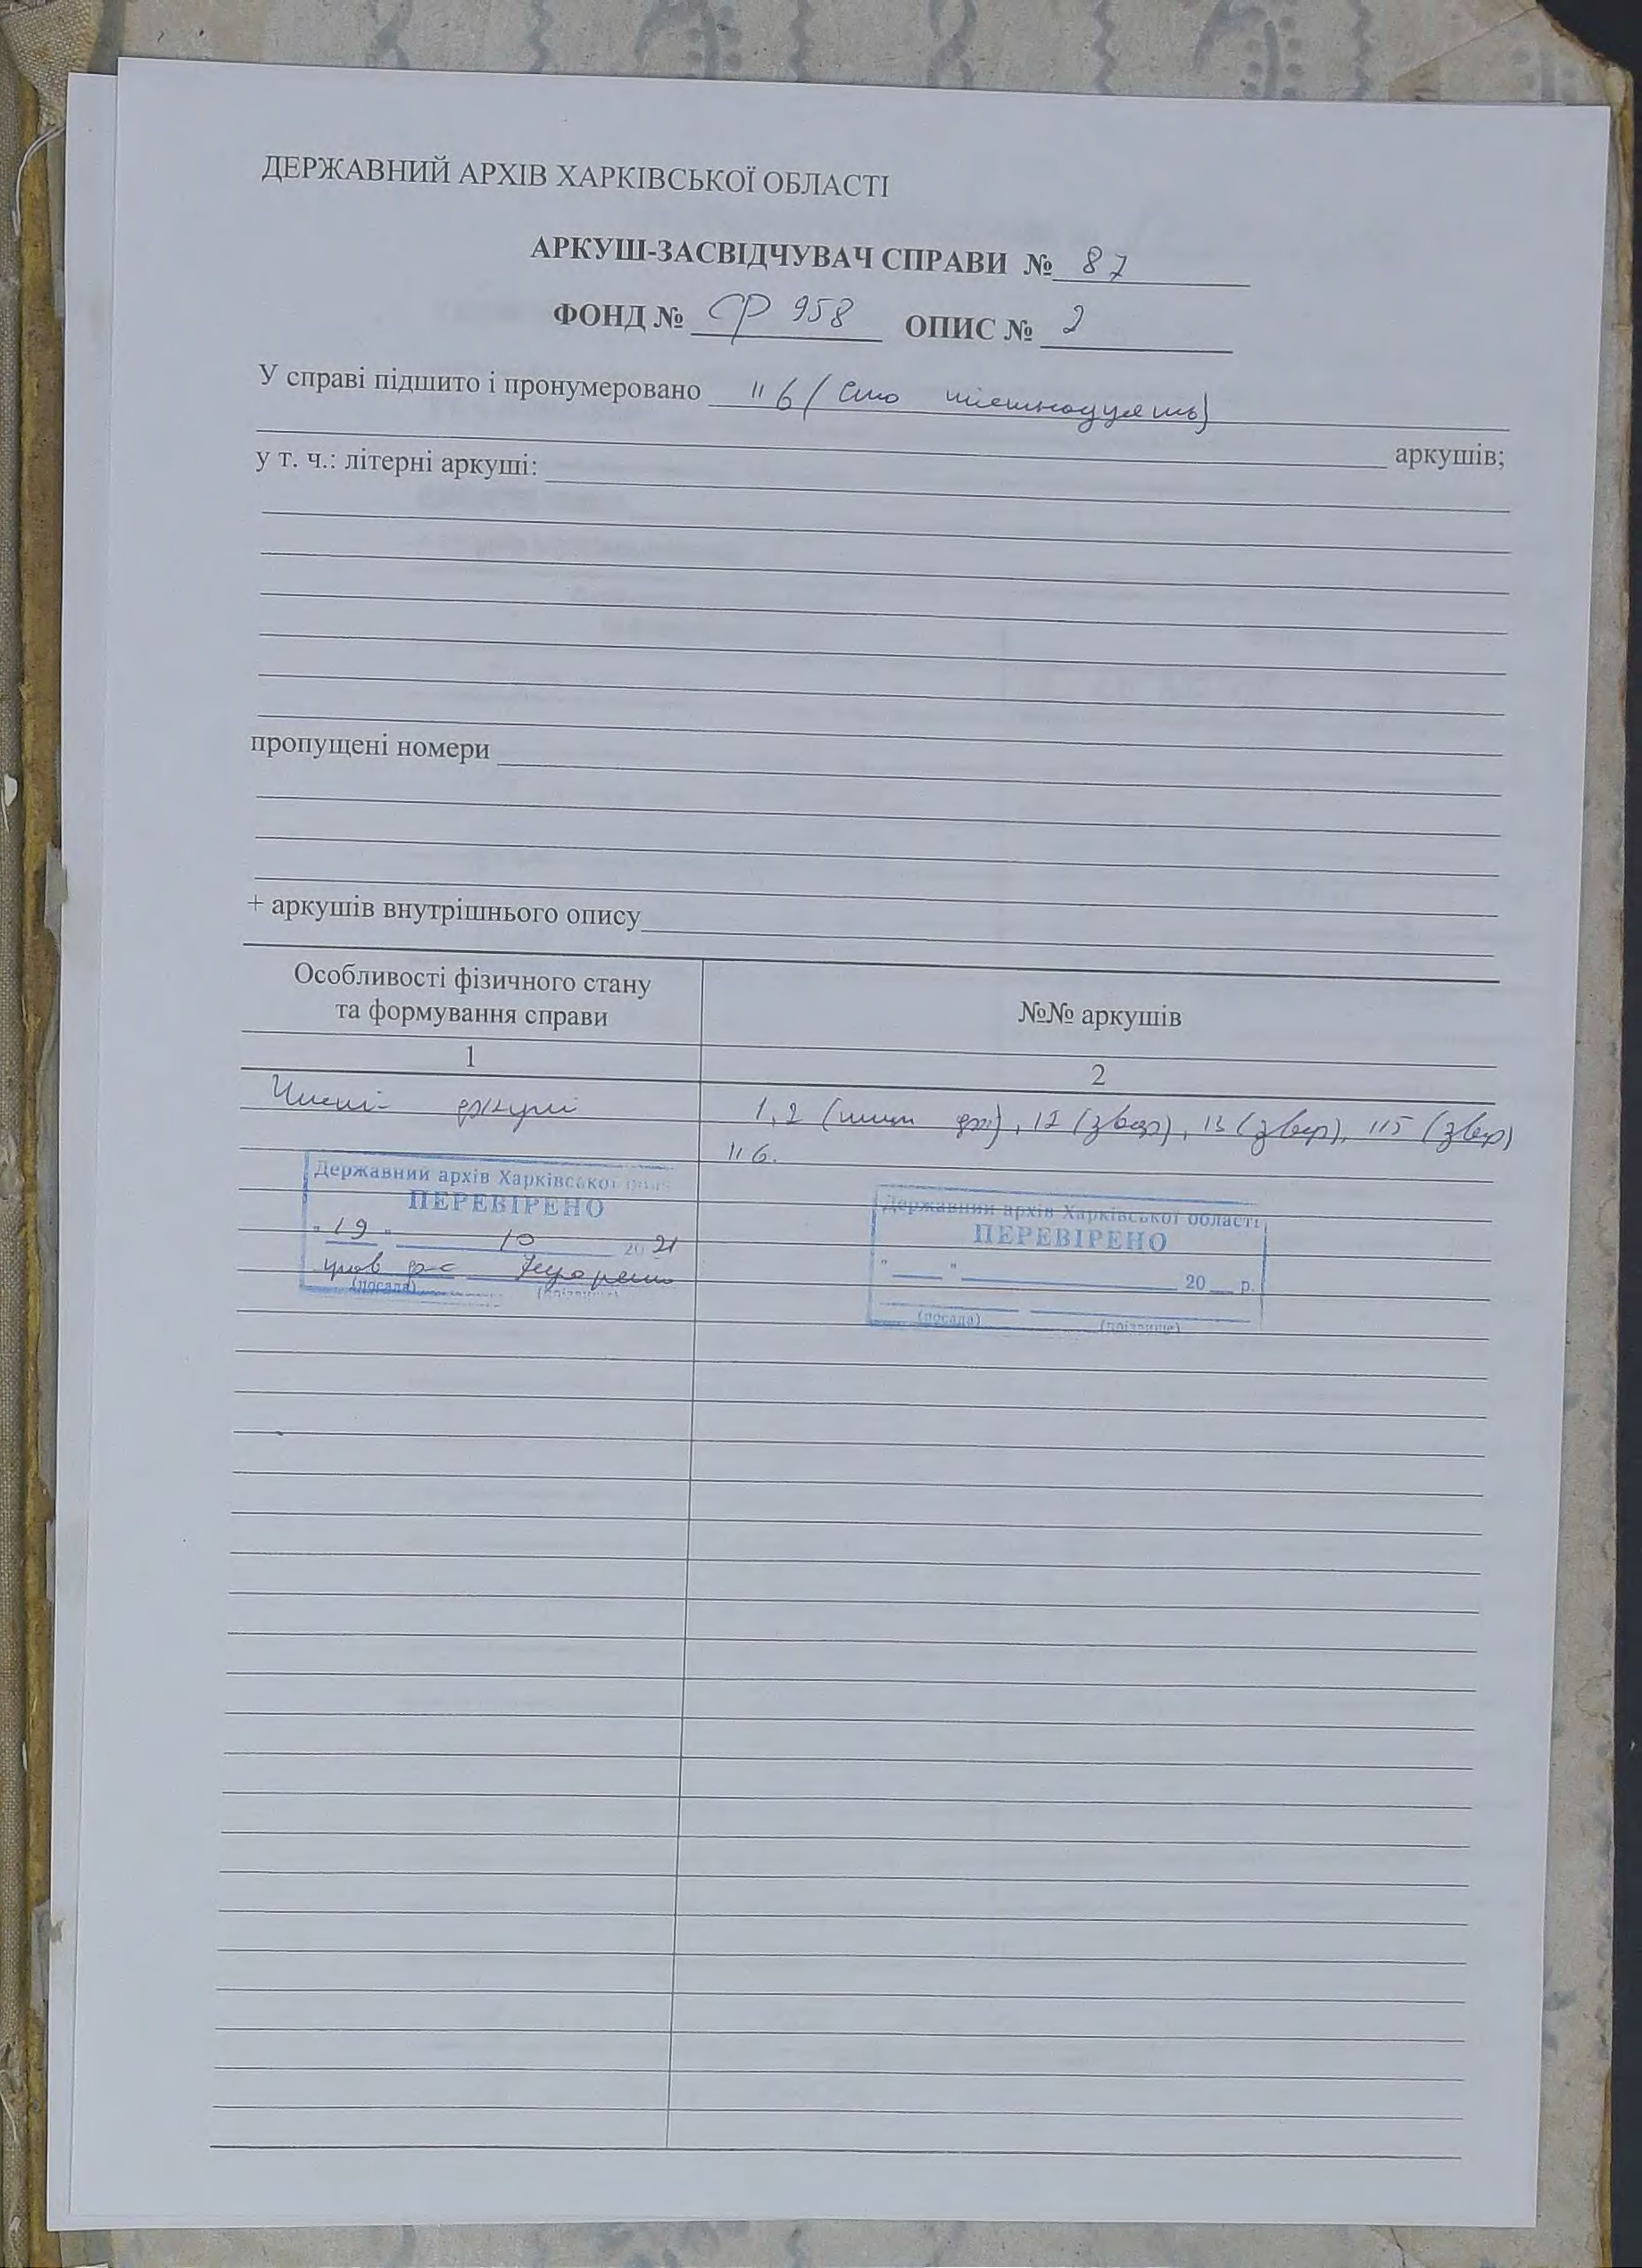 ДЕРЖАВНИЙ АРХІВ ХАРКІВСЬКОЇ ОБЛАСТІ
АРКУШ-ЗАСВІДЧУВАЧ СПРАВИ № 87
ФОНД № СР 958 ОПИС № 2
У справі підшито і пронумеровано 116 (сто шістнадцять)
аркушів;
у т. ч.: літерні аркуші:
пропущені номери
+ аркушів внутрішнього опису
Особливості фізичного стану
та формування справи
№№ аркушів
1
2
Чисті аркуші
1, 2 (), 12 (звор), 13 (звор), 115 (звор)
116.
Державний архів Харківської
ПЕРЕВІРЕНО
"19" 10 2021
(посада) (прізвище)
Державний архів Харківської області
ПЕРЕВІРЕНО
" " 20 р.
(посада) (прізвище)